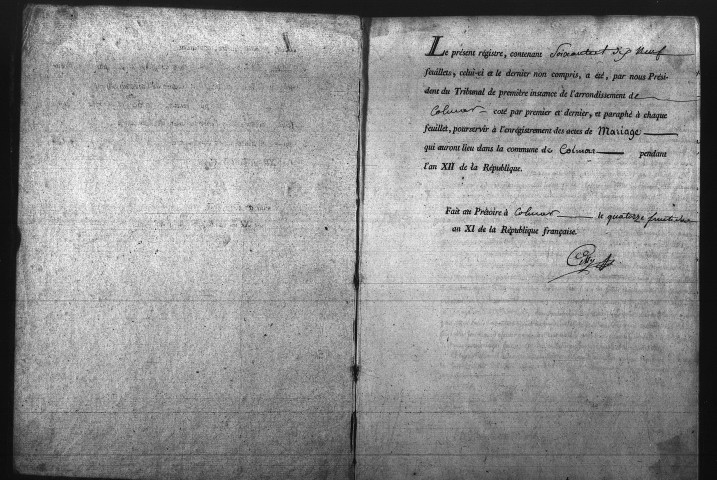 Le présent régistre, contenant Soixante et dix Neuf
feuillets, celui-ci et le dernier non compris, a été, par nous Prési-
dent du Tribunal de première instance de l'arrondissement de
Colmar coté par premier et dernier, et paraphé à chaque
feuillet, pour servir à l'enregistrement des actes de Mariage
qui auront lieu dans la commune de Colmar pendant
l'an XII de la République.
Fait au Prétoire à Colmar le quatorze fructidor
an XI de la République française.